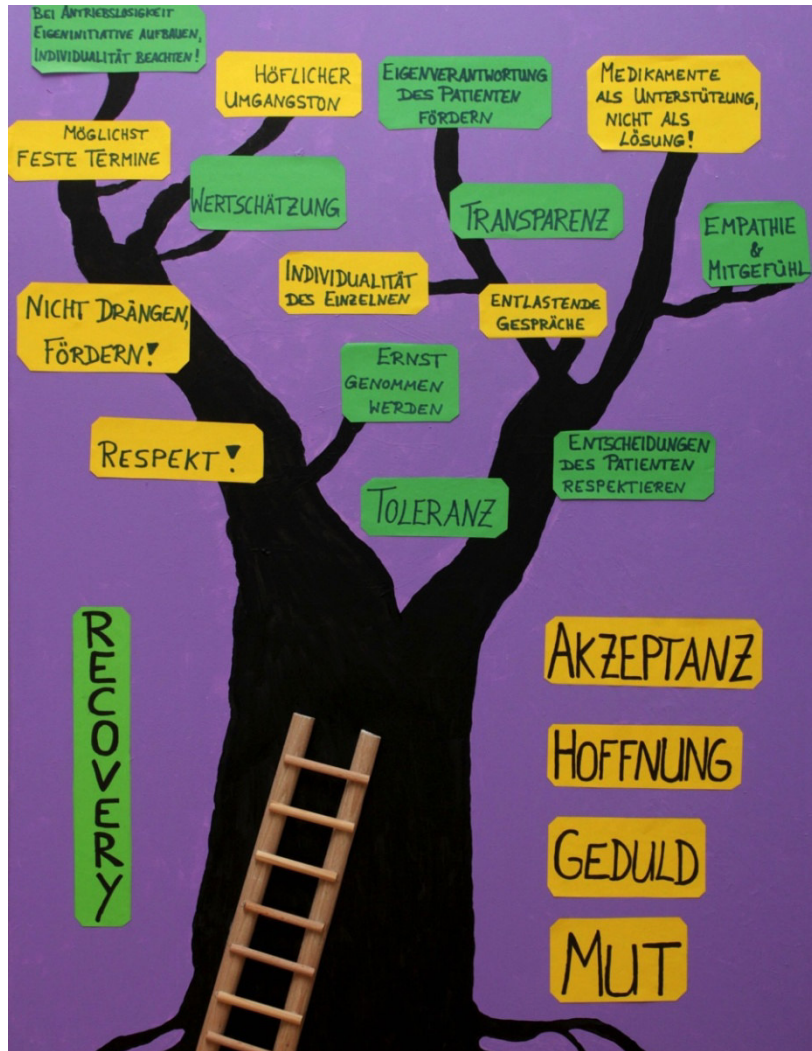 BEI ANTRIEBSLOSIGKEIT
EIGENINITIATIVE AUFBAUEN,
INDIVIDUALITÄT BEACHTEN!
HÖFLICHER
UMGANGSTON
EIGENVERANTWORTUNG
DES PATIENTEN
FÖRDERN
MEDIKAMENTE
ALS UNTERSTÜTZUNG,
NICHT ALS
LÖSUNG!
MÖGLICHST
FESTE TERMINE
WERTSCHÄTZUNG
TRANSPARENZ
EMPATHIE
&
MITGEFÜHL
INDIVIDUALITÄT
DES EINZELNEN
ENTLASTENDE
GESPRÄCHE
NICHT DRÄNGEN,
FÖRDERN!
ERNST
GENOMMEN
WERDEN
RESPEKT!
ENTSCHEIDUNGEN
DES PATIENTEN
RESPEKTIEREN
TOLERANZ
RECOVERY
AKZEPTANZ
HOFFNUNG
GEDULD
MUT